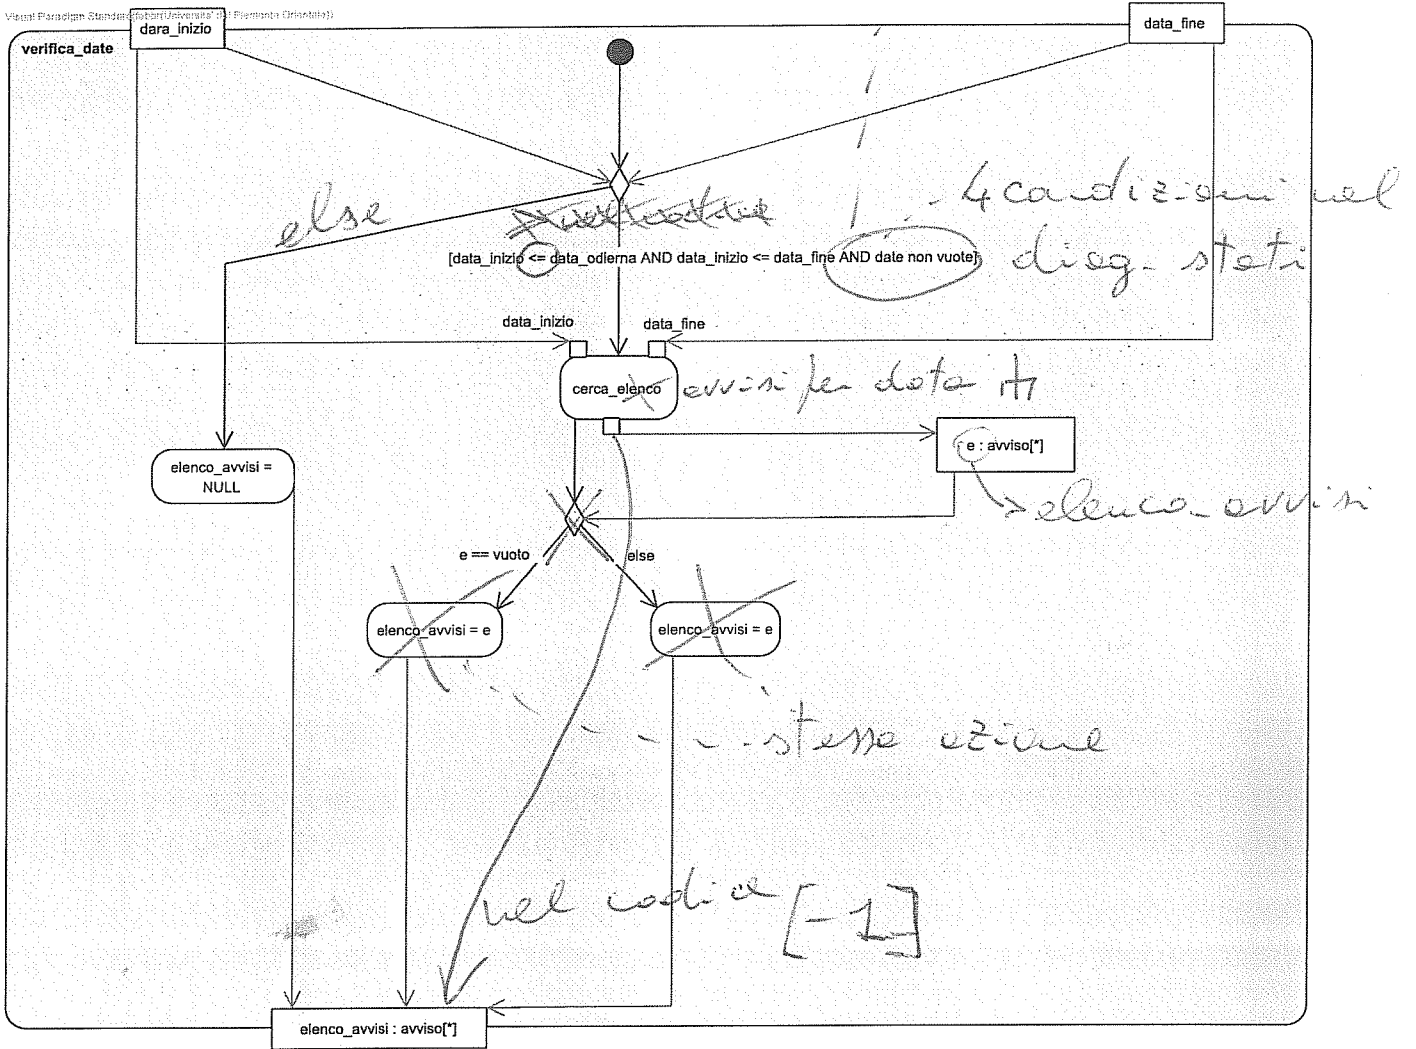 Visual Paradigm Standard(Università del Piemonte Orientale)
dara_inizio
data_fine
verifica_date
else
4 condizioni nel
diag. stati
[data_inizio <= data_odierna AND data_inizio <= data_fine AND date non vuote]
data_inizio
data_fine
cerca_elenco
avvisi per data
e : avviso[*]
elenco_avvisi =
NULL
elenco_avvisi
e == vuoto
else
elenco_avvisi = e
elenco_avvisi = e
stessa azione
nel codice
[-1]
elenco_avvisi : avviso[*]